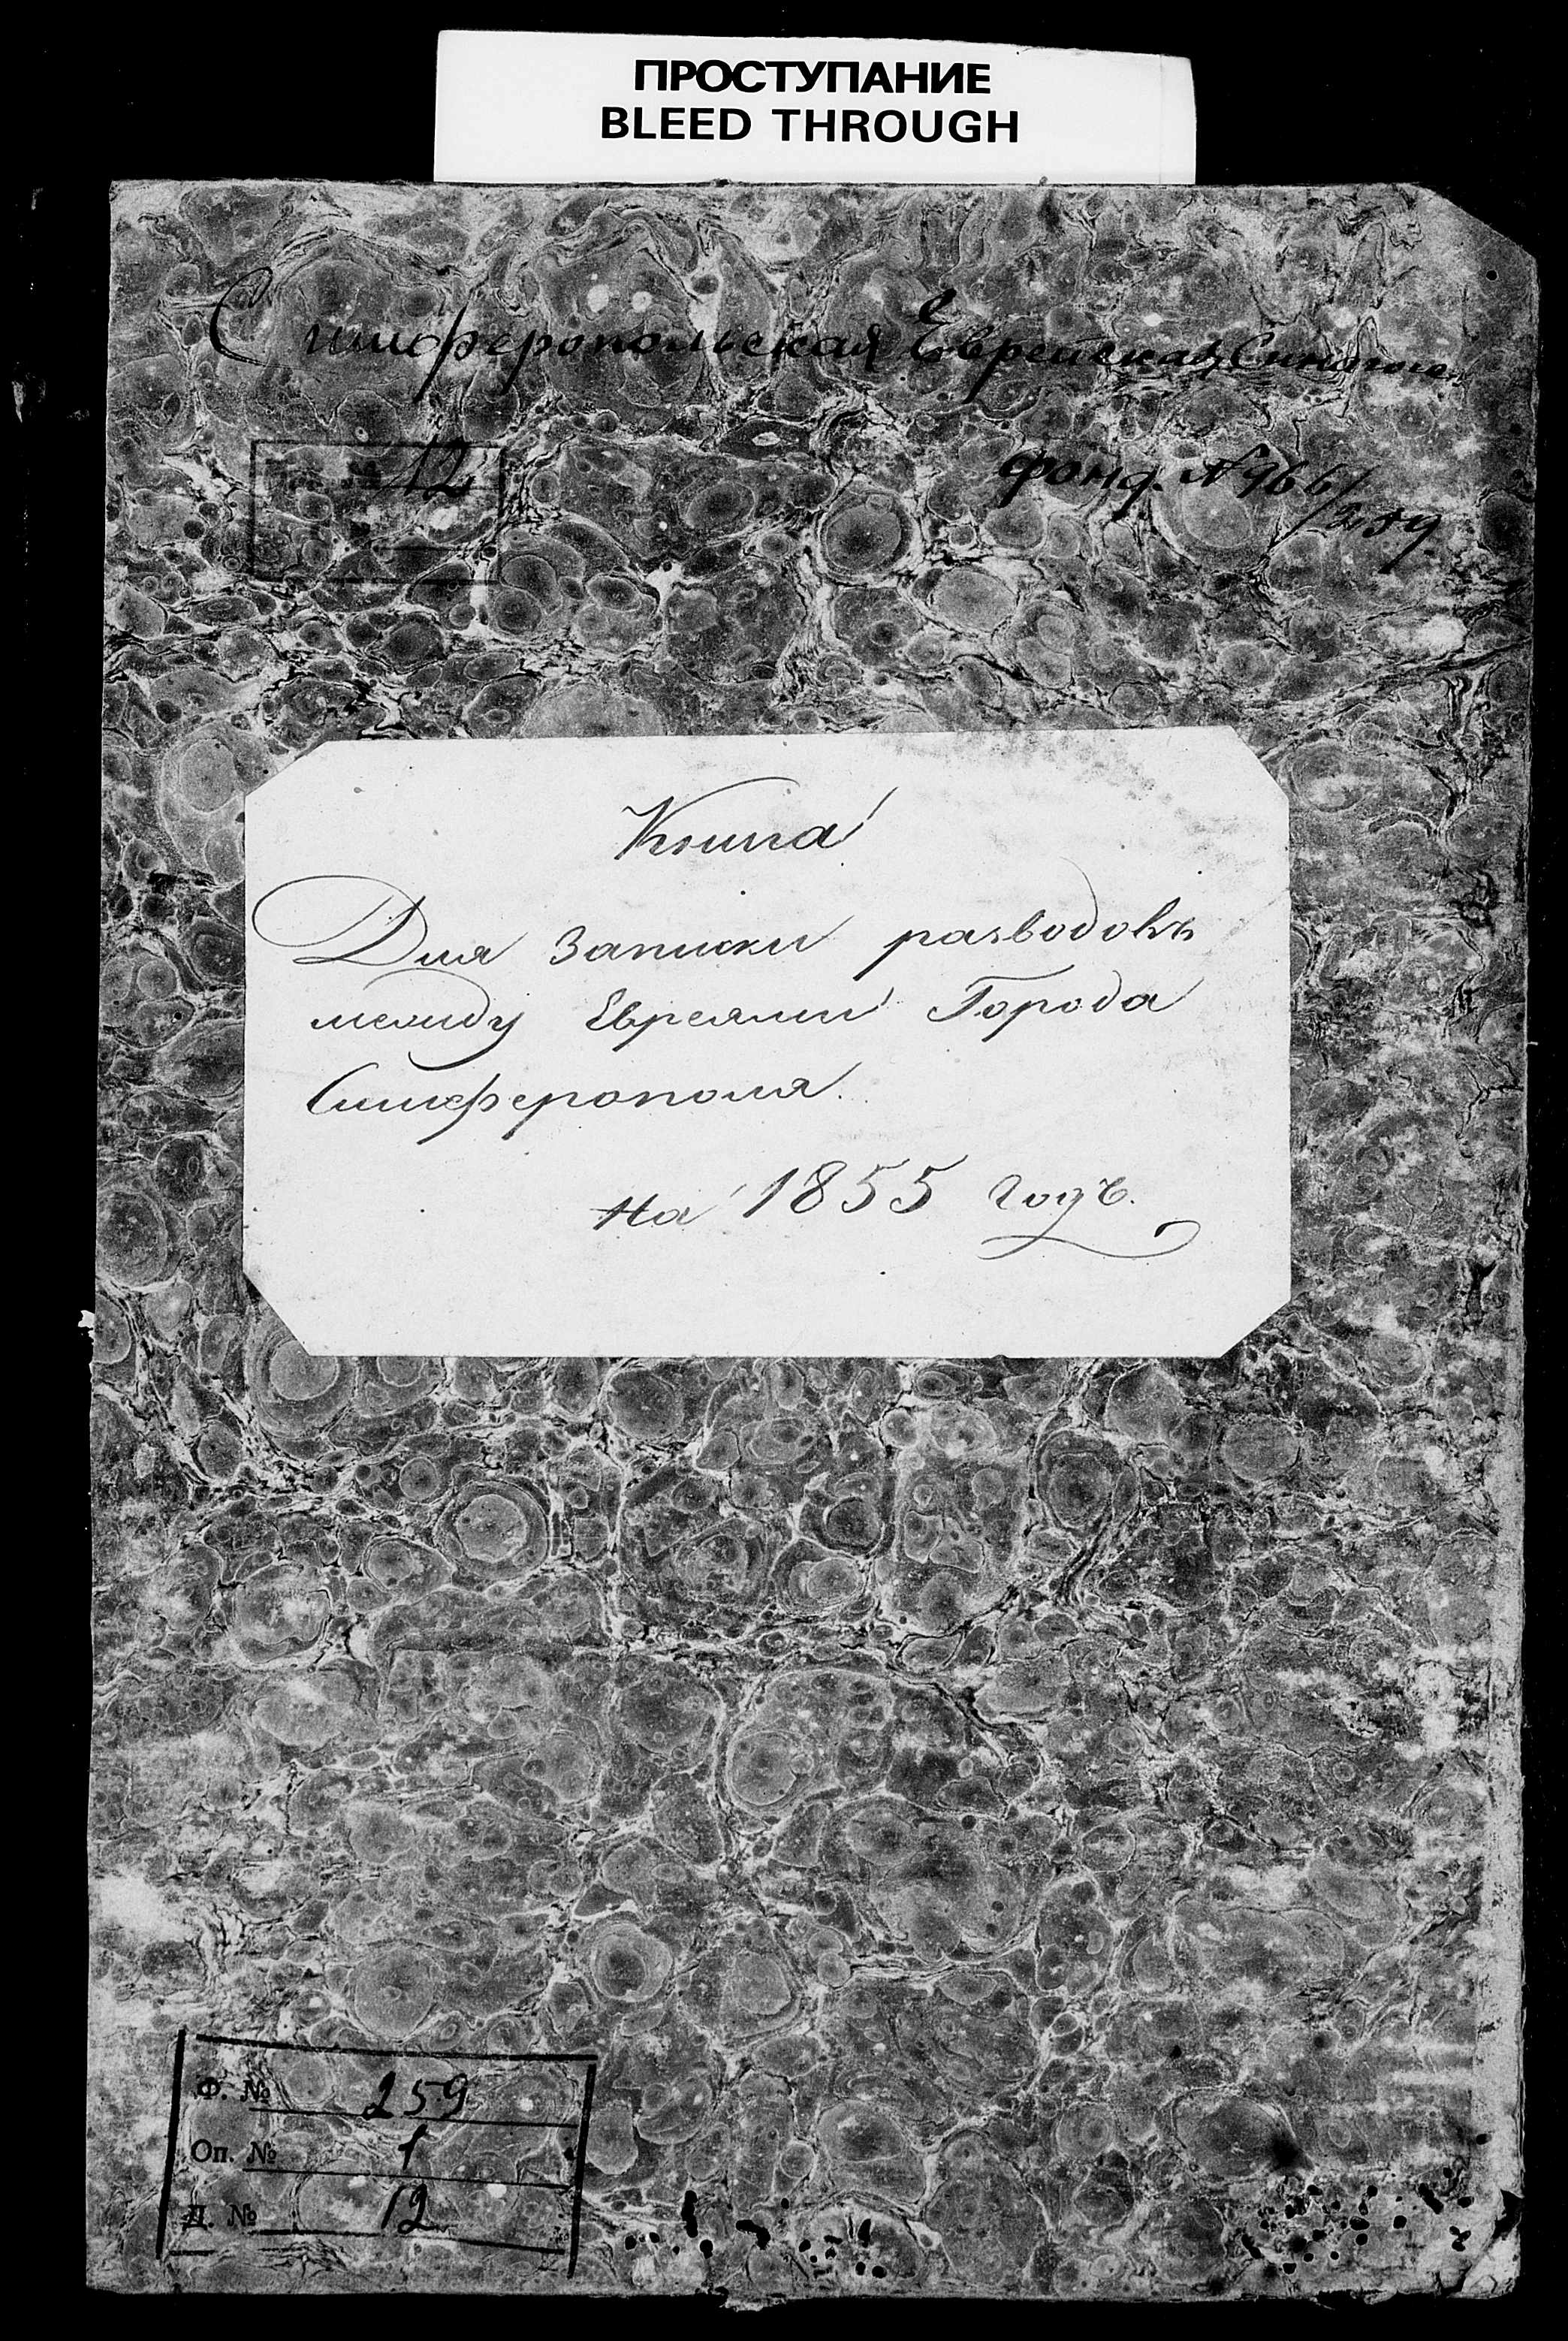 ПРОСТУПАНИЕ
BLEED THROUGH
Симферопольская Еврейская Синагога
12
фонд. № 966/
/259
Книга
Для Записки разводовъ
между Евреями Города
Симферополя.
На 1855 годъ.
Ф. № 259
Оп. № 1
Д. № 12